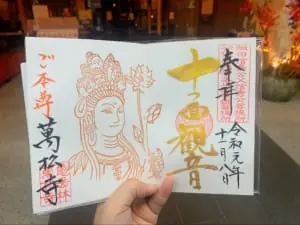 奉拝
令和元年
十一月八日
十一面觀音
ご本尊
萬松寺